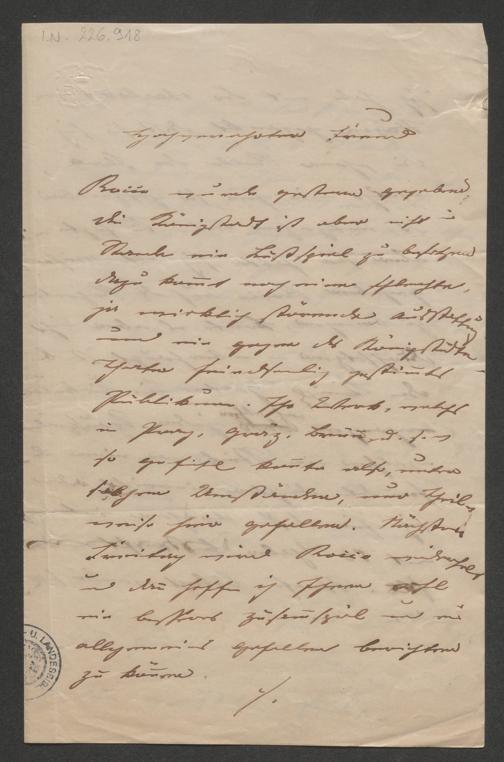 I.N. 226.918
Hochgeehrter Freund
Rococo wurde gestern gegeben
die Königstadt ist aber nicht im
Stande ein Lustspiel zu besetzen
dazu kommt noch eine schlechte,
ja wirklich störende Ausstattung
und ein gegen das Königstädter
Theater feindselig gestimmtes
Publikum. Ihr Werk, welches
in Prag, Graz, Brünn, d. s. w
so gefiel konnte also, unter
solchen Umständen, nur theil-
weise hier gefallen. Nächsten
Freitag wird Rococo wiederholt
und dann hoffe ich Ihnen
ein besseres Zusammspiel und ein
allgemeines gefallen berichten
zu können.
./.
U. LANDESBIB